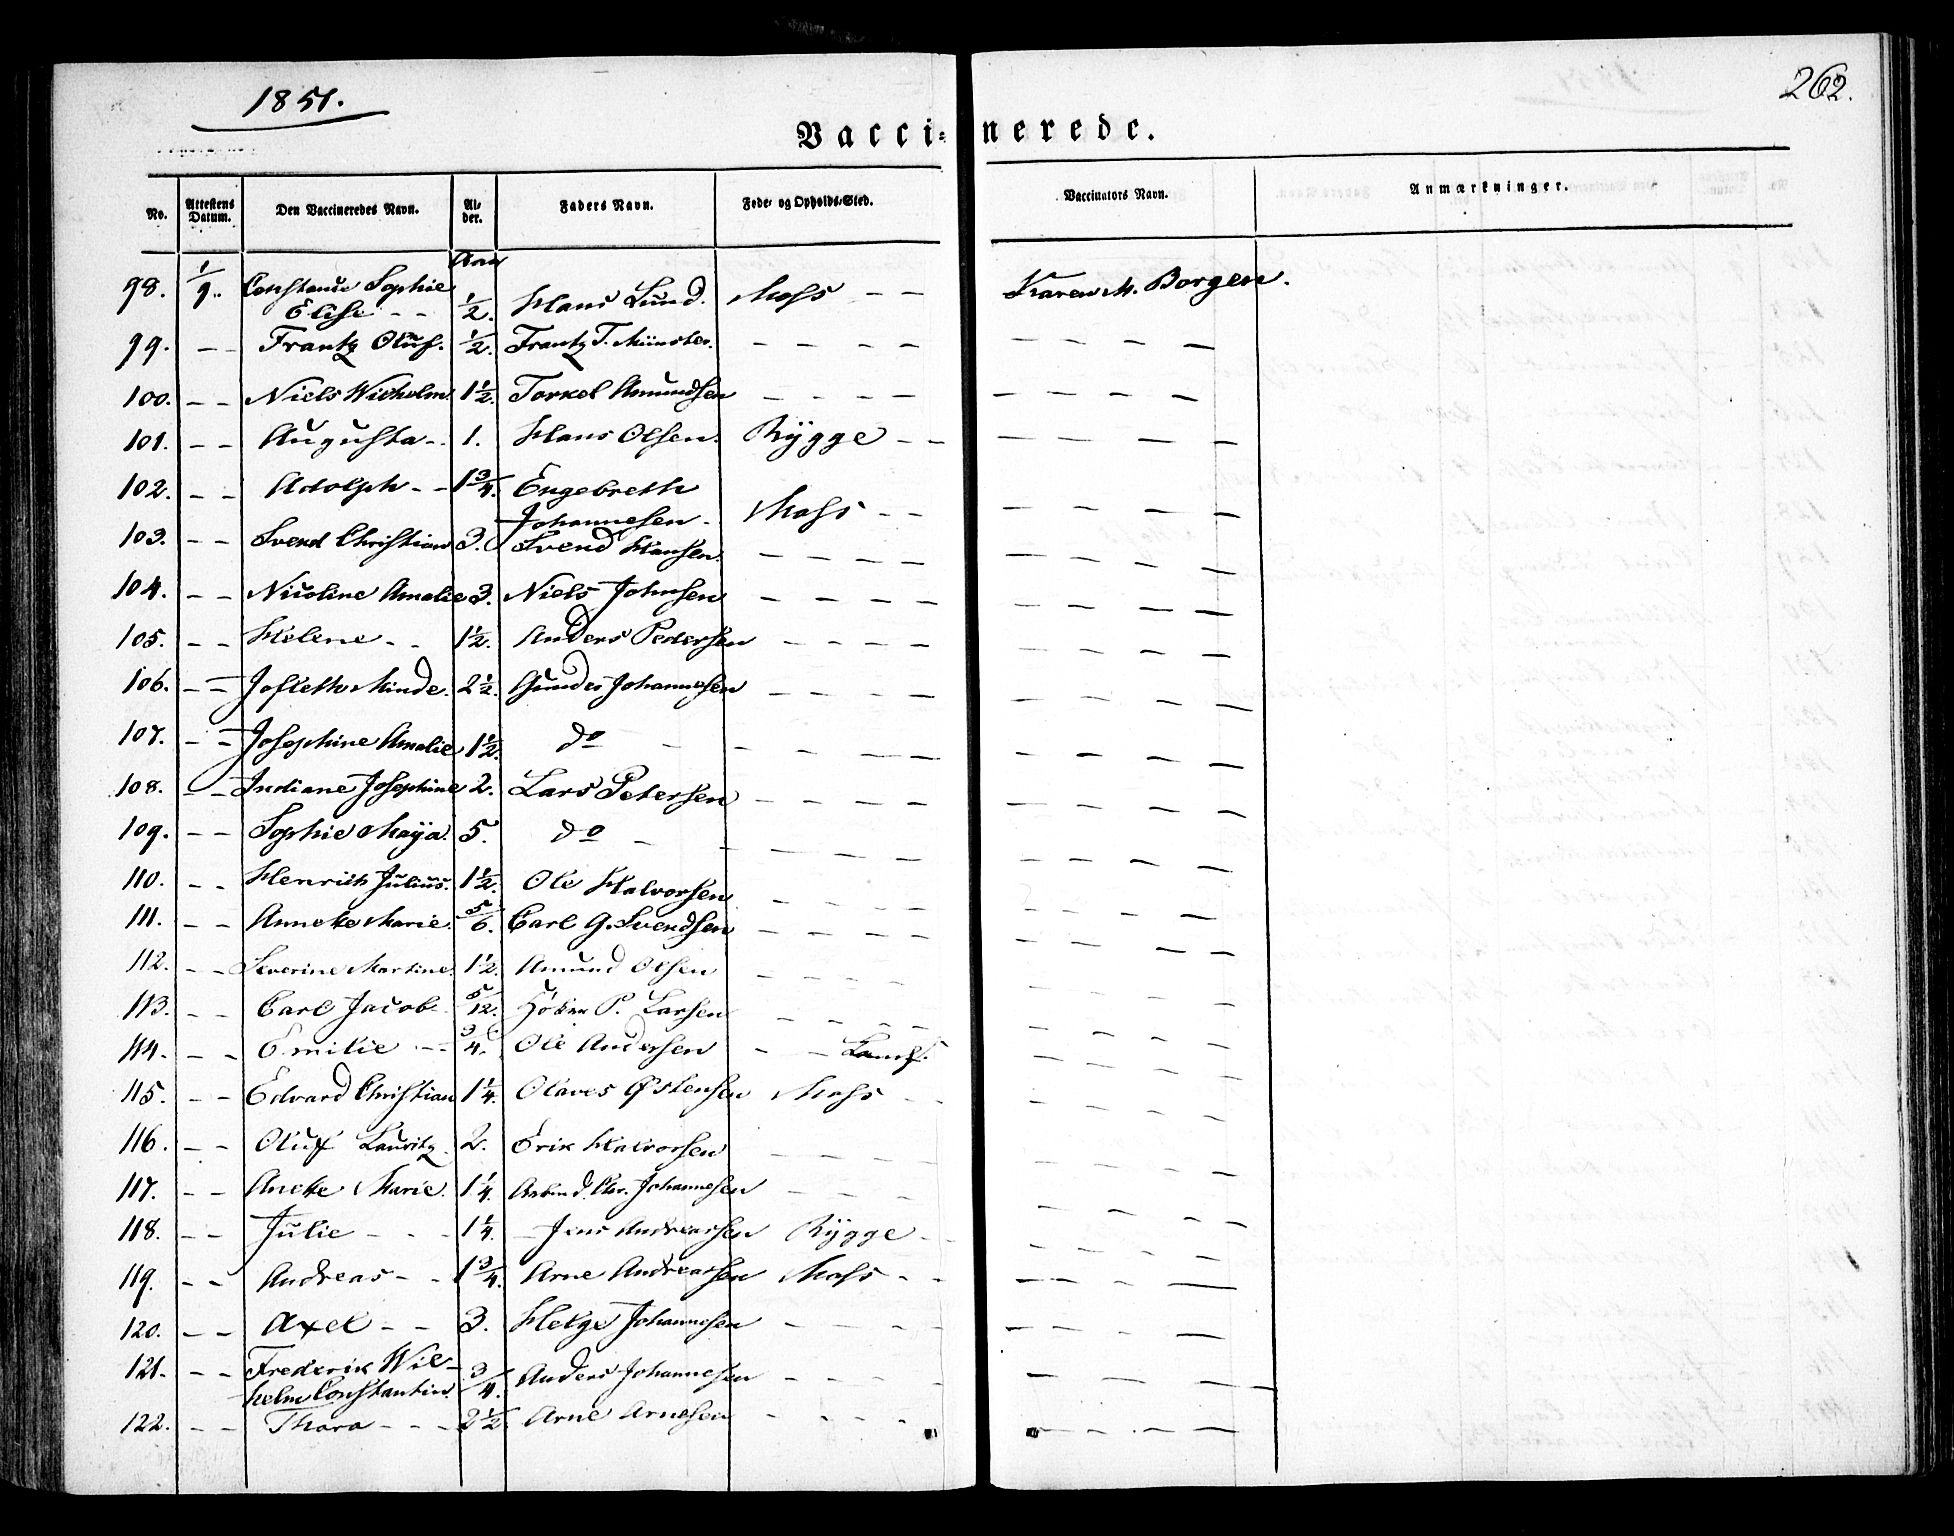 1851.
262.
Vaccinerede.
No. Attestens Datum. Den Vaccineredes Navn. Alder. Faders Navn. Føde- og Opholds-Sted. Vaccinators Navn. Anmærkninger.
Aar
98. 1/9. Constance Sophie
Elise - - 1/2. Hans Lund. Moss - - Karen M. Borgen.
99. - - Frantz Oluf. 1/2. Frantz T. Münster. - - - - - - - -
100. - - Niels Wilhelm 1 1/2. Torkel Amundsen - - - - - - - -
101. - - Augusta - . 1. Hans Olsen. Rygge - - - - - -
102. - - Adolph - - 1 3/4. Engebreth
Johannesen - Moss - - - - - -
103. - - Svend Christian 3. Svend Hansen. - - - - - - - -
104. - - Nicoline Amalie 3. Niels Johnsen - - - - - - - -
105. - - Helene - - 1 1/2. Anders Pedersen - - - - - - - -
106. - - Josleth Minde. 2 1/2. Gunder Johannesen - - - - - - - -
107. - - Josephine Amalie 1 1/2. do - - - - - - - - -
108. - - Indiane Josephine 2. Lars Petersen - - - - - - - -
109. - - Sophie Maja. 5. do - - - - - - - - -
110. - - Henrich Julius. 1 1/2. Ole Halvorsen - - - - - - - -
111. - - Annette Marie. 5/6. Carl G. Svendsen - - - - - - - -
112. - - Severine Martine. 1 1/2. Amund Olsen - - - - - - - -
113. - - Carl Jacob 5/12. P. Larsen - - - - - - - -
114. - - Emilie - - 3/4. Ole Andersen - - - - - -
115. - - Edvard Christian 1 1/4. Olaves Østensen Moss - - - - - -
116. - - Oluf Lauritz. 2. Erik Halvorsen - - - - - - - -
117. - - Anette Marie. 1 1/4. Chr. Johannesen - - - - - - - -
118. - - Julie - - - 1 1/4. Jens Andreassen Rygge - - - - - -
119. - - Andreas - - 1 3/4. Arne Andreassen Moss - - - - - -
120. - - Axel - - 3. Helge Johannesen - - - - - - - -
121. - - Frederik Wil-
helm Constantin. 3/4. Anders Johannesen - - - - - - - -
122. - - Thora - - - 2 1/2. Arne Arnesen - - - - - - - -